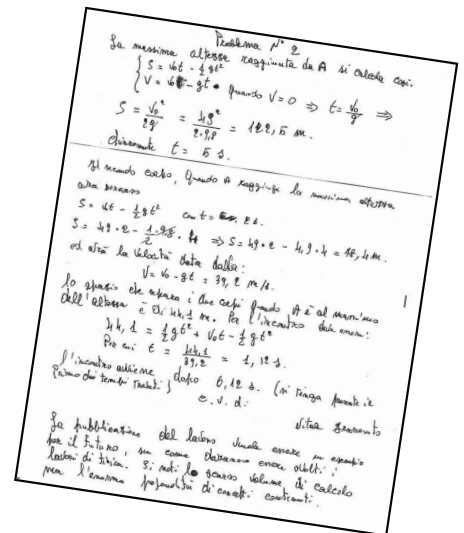 Problema N° 2
La massima altezza raggiunta da A si calcola così.
S = v₀t - ½gt²
V = v₀ - gt. quando V=0 ⇒ t = v₀/g ⇒
S = v₀²/2g = 49²/2·9,8 = 122,5 m.
t = 5 s.
Il secondo corpo, quando A raggiunge la massima altezza
avrà percorso
S = v₀t - ½gt² con t = 2 s.
S = 49·2 - 1·9,8/2 · 4 ⇒ S = 49·2 - 4,9·4 = 78,4 m.
ed avrà la velocità data dalla:
V = v₀ - gt = 39,2 m/s.
lo spazio che separa i due corpi quando A è al massimo
dell'altezza è di 44,1 m. Per l'incontro
44,1 = ½gt² + v₀t - ½gt²
Per cui t = 44,1/39,2 = 1,12 s.
l'incontro avviene dopo 6,12 s. (si tenga presente il
primo dei tempi trovati)
c.v.d.
La pubblicazione del lavoro vuole essere un esempio
per il futuro, su come dovranno essere svolti i
lavori di fisica. Si noti lo scarso volume di calcolo
ma l'enorme profondità di concetti contenuti.